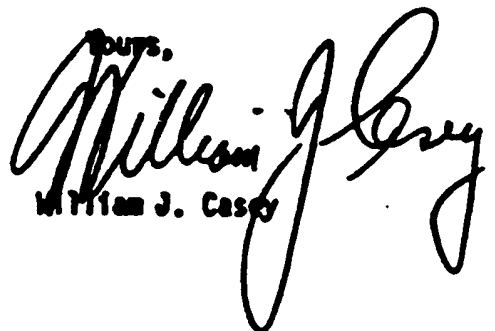 Yours,
William J Casey
William J. Casey